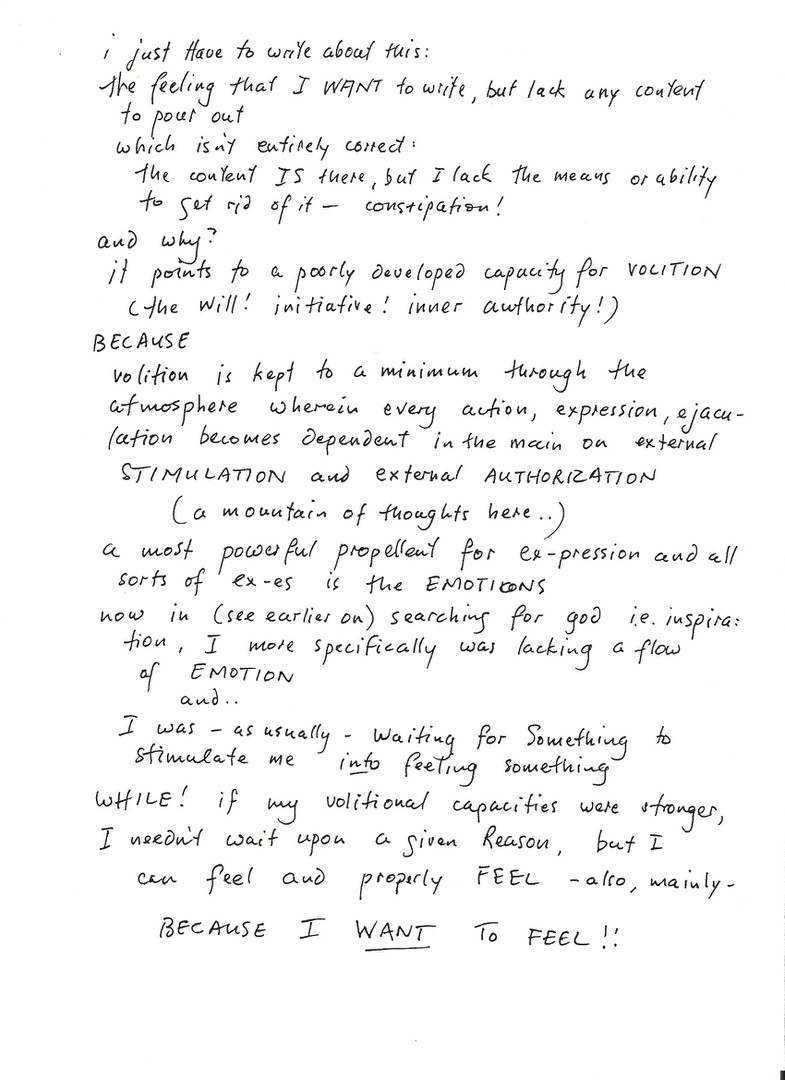 i just Have to write about this:
the feeling that I WANT to write, but lack any content
to pour out
which isn't entirely correct:
the content IS there, but I lack the means or ability
to get rid of it – constipation!
and why?
it points to a poorly developed capacity for VOLITION
(the Will! initiative! inner authority!)
BECAUSE
volition is kept to a minimum through the
atmosphere wherein every action, expression, ejacu-
lation becomes dependent in the main on external
STIMULATION and external AUTHORIZATION
(a mountain of thoughts here..)
a most powerful propellent for ex-pression and all
sorts of ex-es is the EMOTIONS
now in (see earlier on) searching for god i.e. inspira:
tion, I more specifically was lacking a flow
of EMOTION
and..
I was – as usually – Waiting for Something to
stimulate me into feeling something
WHILE! if my volitional capacities were stronger,
I needn't wait upon a given Reason, but I
can feel and properly FEEL – also, mainly –
BECAUSE I WANT To FEEL!!